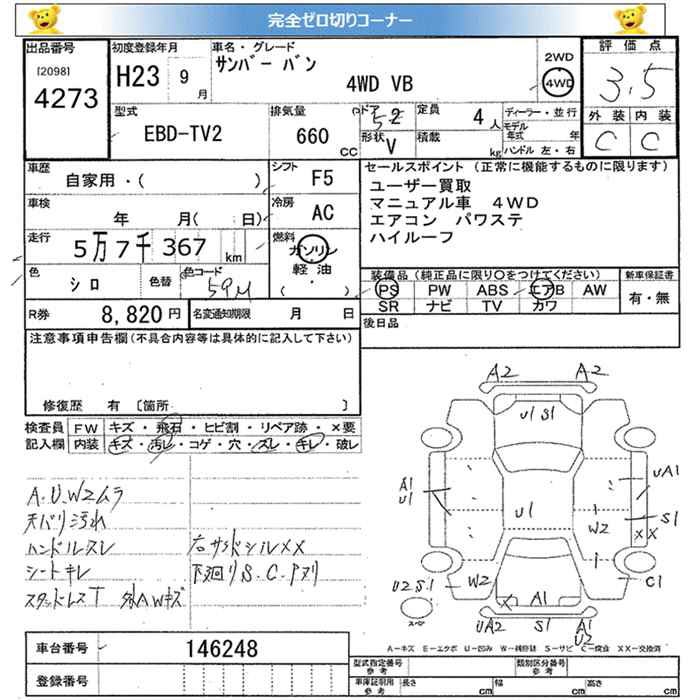 完全ゼロ切りコーナー
出品番号
[2098]
4273
初度登録年月
H23 9月
車名・グレード
サンバー バン
4WD VB
2WD
4WD
評価点
3.5
外装 内装
C C
型式
EBD-TV2
排気量
660 CC
ドア
形状
V
定員
4人
積載
kg
ディーラー・並行
モデル年式 年
ハンドル 左・右
車歴
自家用・( )
シフト
F5
車検
年 月( 日)
冷房
AC
走行
5万7千367 km
燃料
ガソリン
軽油
( ・ )
色
シロ
色替
色コード
59M
セールスポイント (正常に機能するものに限ります)
ユーザー買取
マニュアル車 4WD
エアコン パワステ
ハイルーフ
装備品(純正品に限り○をつけてください)
PS PW ABS エアB AW
SR ナビ TV カワ
新車保証書
有・無
R券
8,820円
名変通知期限 月 日
後日品
注意事項申告欄(不具合内容等は具体的に記入して下さい)
修復歴 有 [箇所 ]
検査員記入欄
FW キズ・飛石・ヒビ割・リペア跡・×要
内装 キズ・汚レ・コゲ・穴・スレ・キレ・破レ
A.U.W2ムラ
天バリ汚れ
ハンドルスレ
シートキレ
スタッドレスT 外AWキズ
右サイドシルXX
下廻りS.C.アリ
A2 A2
U1 S1
A1
U1
UA1
U1
S1
W2
XX
W2
C1
U2 S1
A1
UA2 S1 A1
U2
スペア
A-キズ E-エクボ U-凹み W-補修跡 S-サビ C-腐食 XX-交換済
車台番号
146248
登録番号
型式指定番号
参考
類別区分番号
参考
車庫証明用
参考
長さ cm 幅 cm 高さ cm